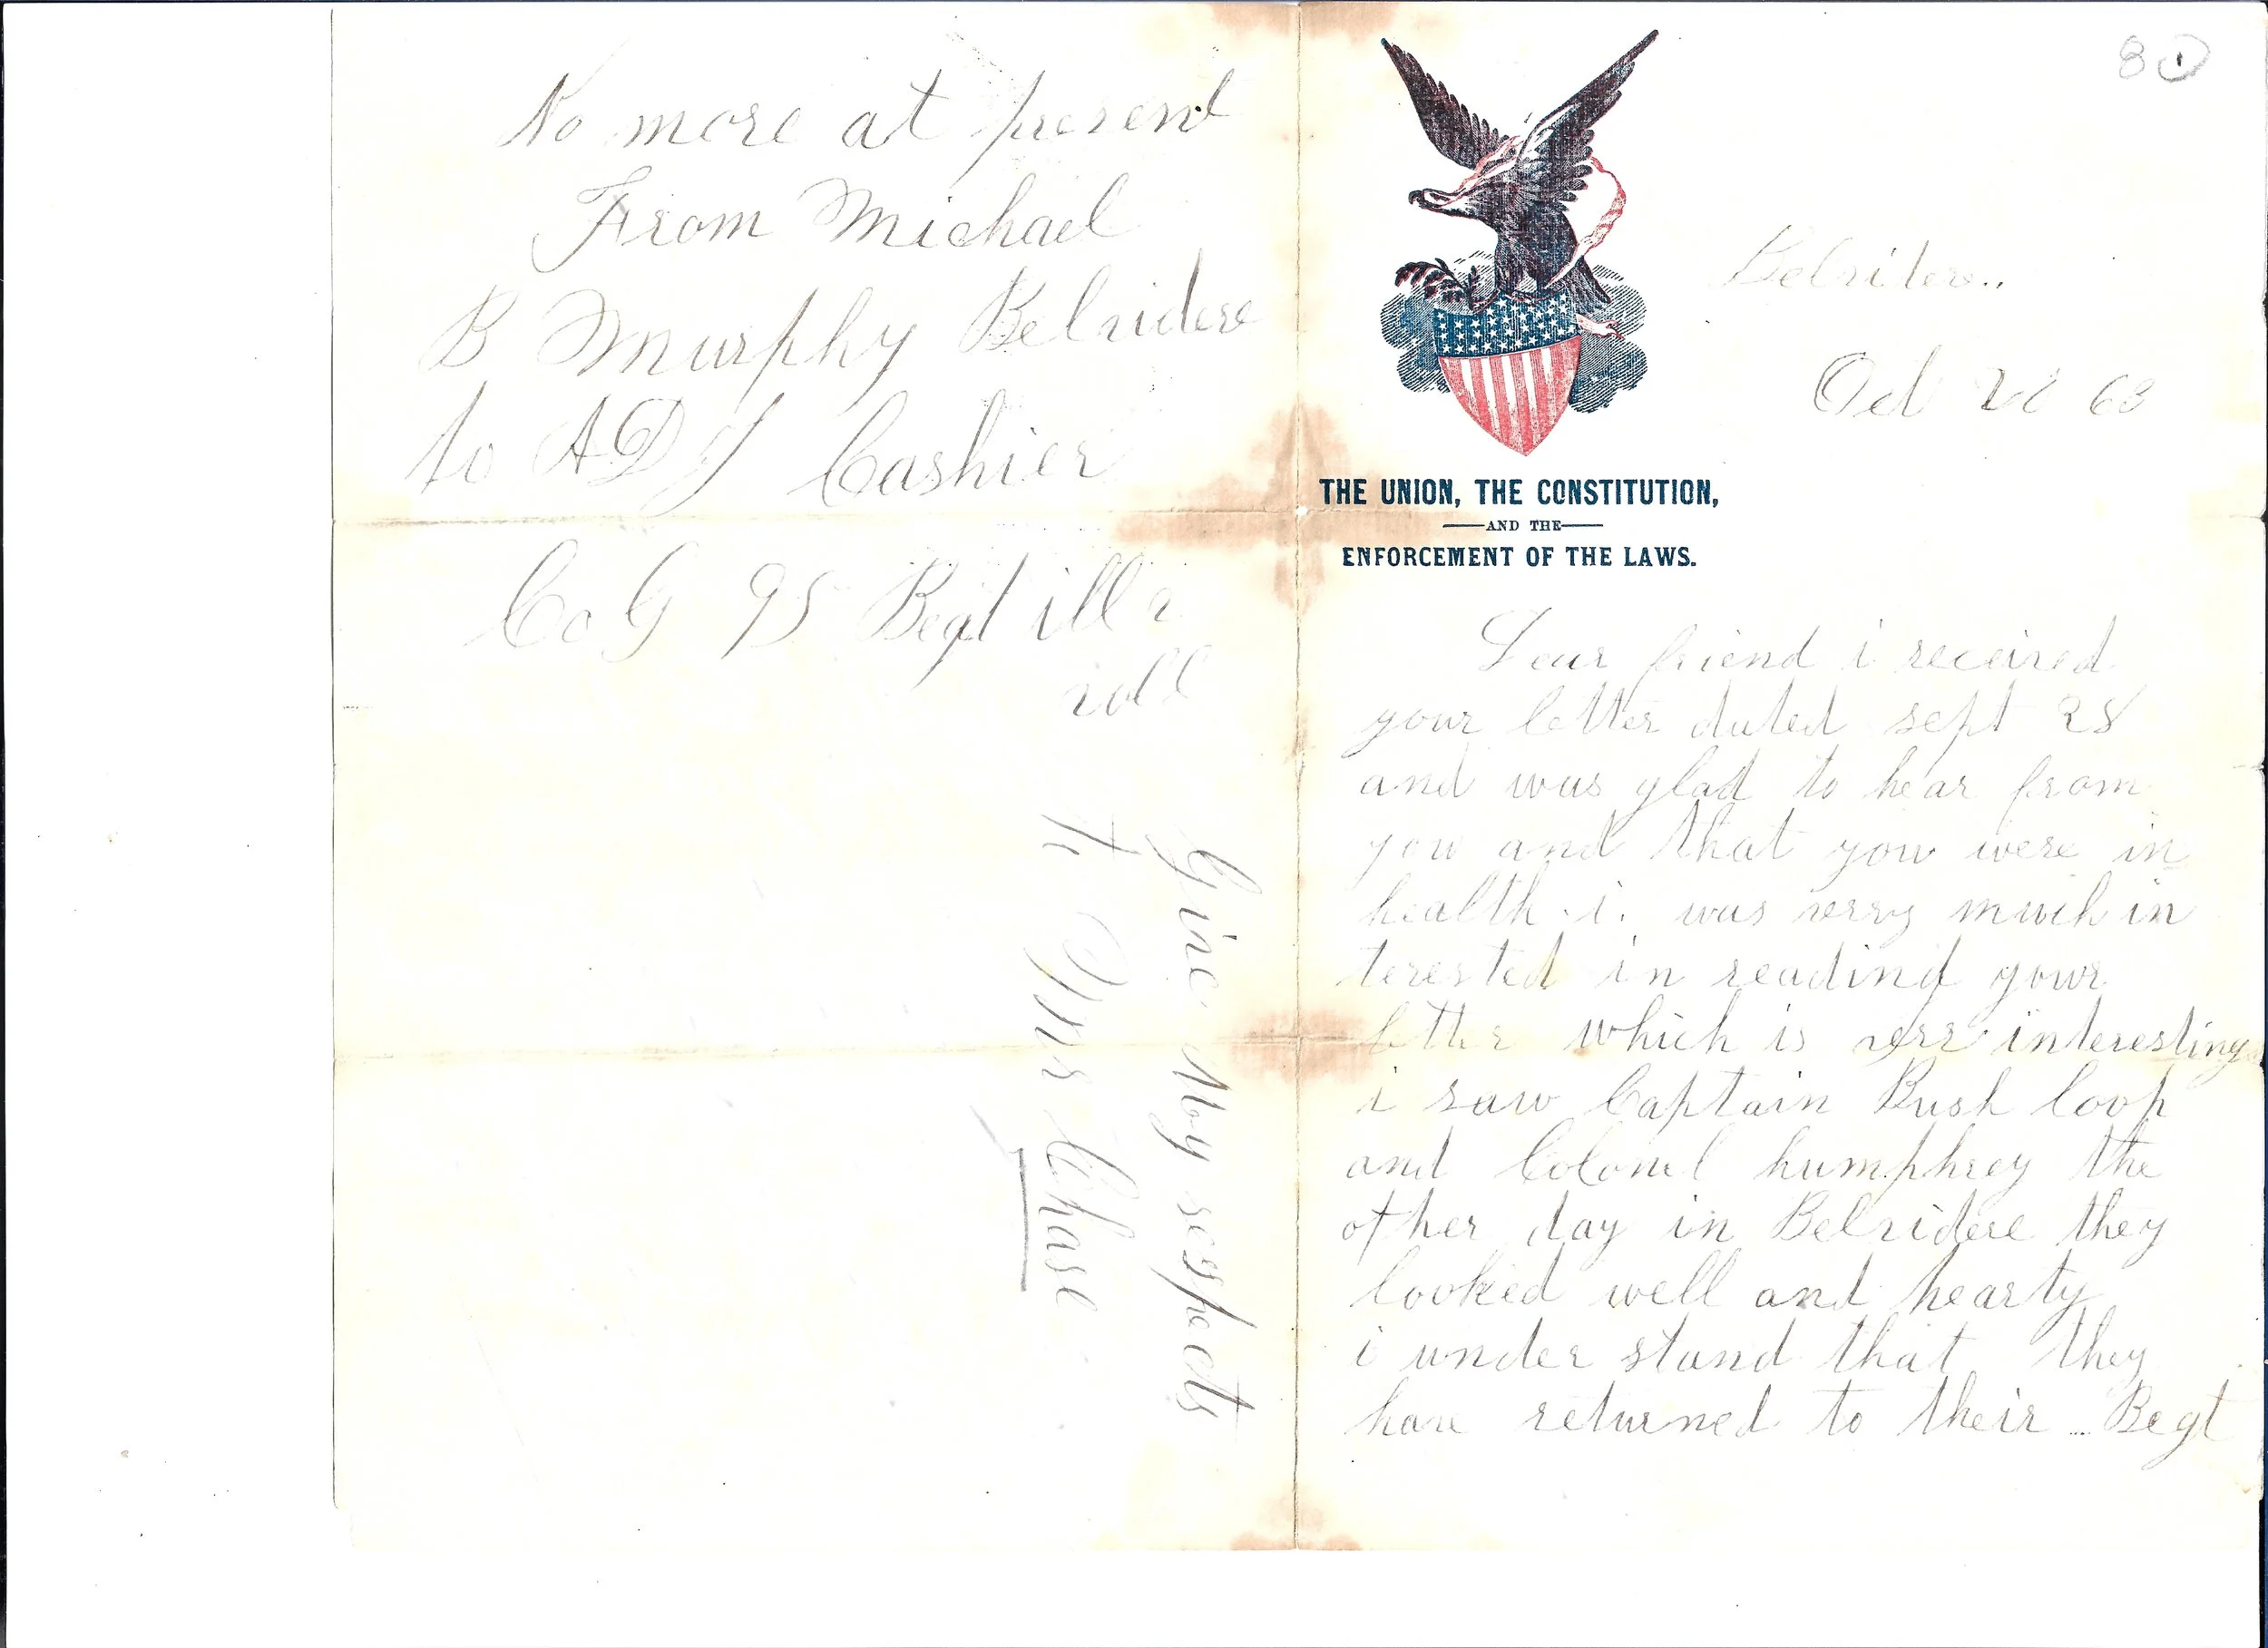 8 1
Belvidere..
Oct 63
THE UNION, THE CONSTITUTION,
AND THE
ENFORCEMENT OF THE LAWS.
Dear friend i received
your letter dated sept 28
and was glad to hear from
you and that you were in
health i was verry much in
terested in readind your
which is interesting
i saw Captain Bush loop
and Colonel humphrey the
other day in Belvidere they
looked well and hearty
i under stand that they
have returned to their Regt
No more at present
From Michael
B Murphy Belvidere
to Cashier
Co G 95 Regt ill
Give My respects
to Chase